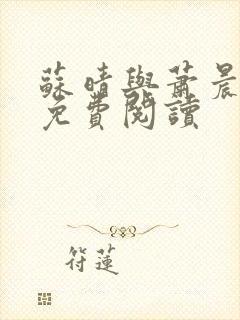 蘇晴與蕭晨
免費閱讀
符蓮